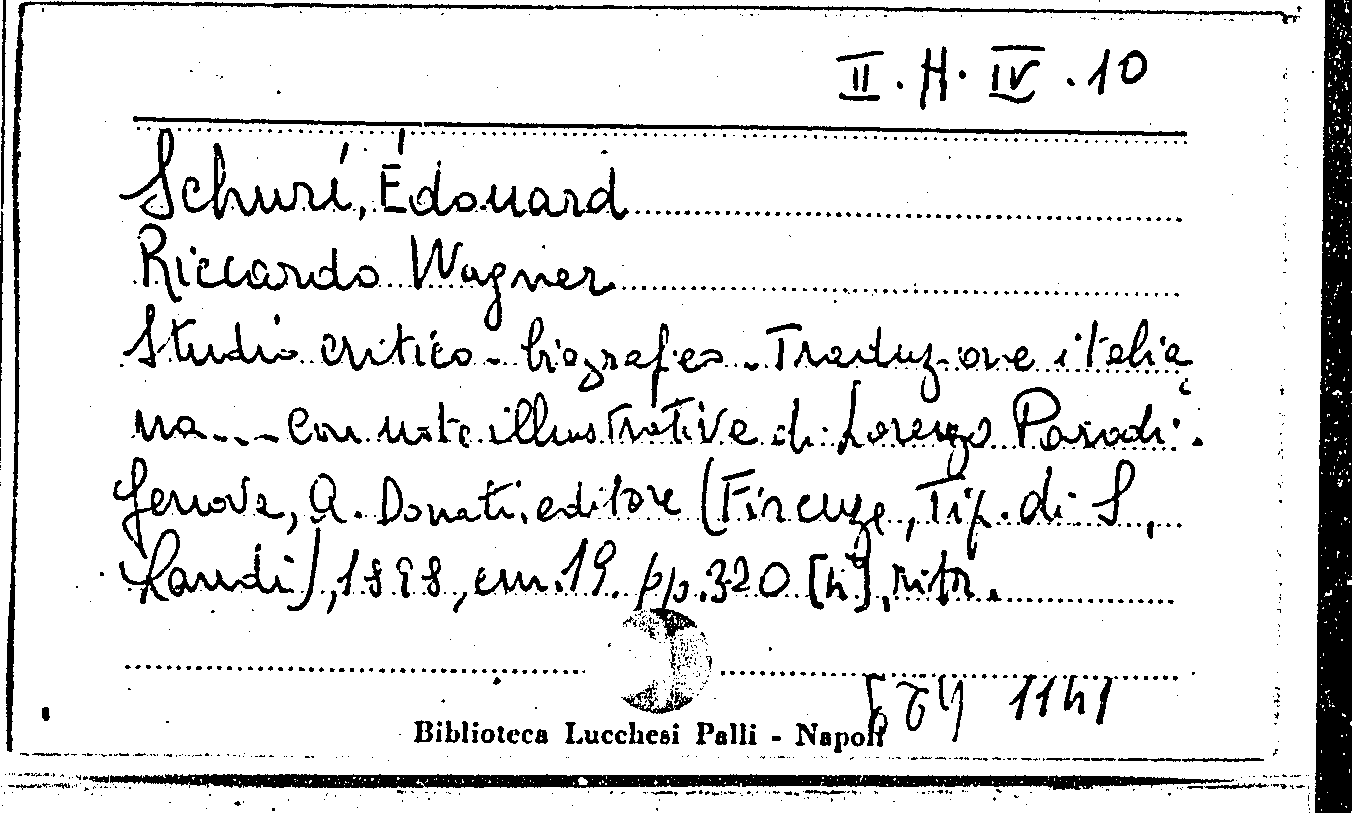 II. H. IV. 10
Schuré, Édouard
Riccardo Wagner
Studio critico - biografico. Traduzione italia
na... con note illustrative di Lorenzo Parodi.
Genova, A. Donati, editore (Firenze, Tip. di S.
Landi), 1898, cm. 19. pp. 320 [4], ritr.
1141
Biblioteca Lucchesi Palli - Napoli